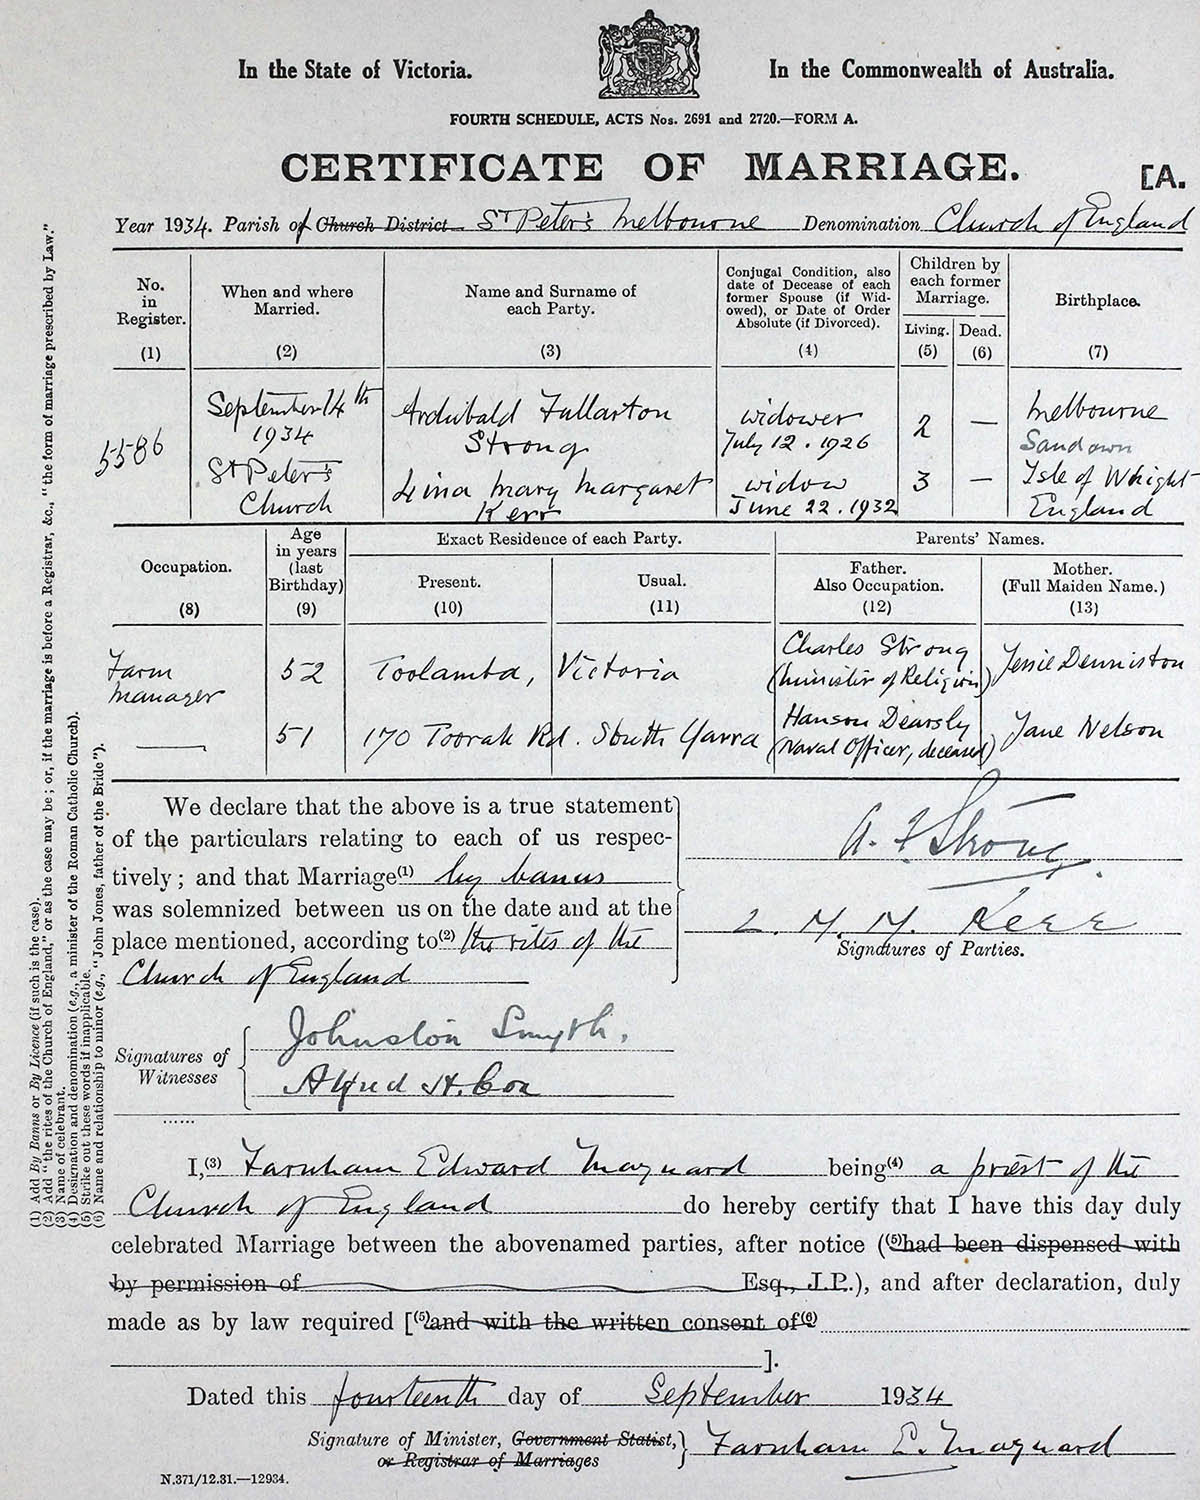 In the State of Victoria.
In the Commonwealth of Australia.
FOURTH SCHEDULE, ACTS Nos. 2691 and 2720.—FORM A.
CERTIFICATE OF MARRIAGE.
[A.
Year 1934. Parish of Church District St Peter's Melbourne Denomination Church of England
No. in Register. (1)
When and where Married. (2)
Name and Surname of each Party. (3)
Conjugal Condition, also date of Decease of each former Spouse (if Widowed), or Date of Order Absolute (if Divorced). (4)
Children by each former Marriage.
Living. (5)
Dead. (6)
Birthplace. (7)
5586
September 14th
1934
St Peter's
Church
Archibald Fullarton
Strong
widower
July 12. 1926
2 —
Melbourne
Lina Mary Margaret
Kerr
widow
June 22. 1932
3 —
Sandown
Isle of Wright
England
Occupation. (8)
Age in years (last Birthday) (9)
Exact Residence of each Party.
Present. (10)
Usual. (11)
Parents' Names.
Father. Also Occupation. (12)
Mother. (Full Maiden Name.) (13)
Farm
Manager
52
Toolamba, Victoria
Charles Strong
(Minister of Religion)
Jessie Denniston
—
51
170 Toorak Rd. South Yarra
Hanson Dearsly
(Naval Officer, deceased)
Jane Nelson
We declare that the above is a true statement
of the particulars relating to each of us respec-
tively; and that Marriage(1) by banns
was solemnized between us on the date and at the
place mentioned, according to(2) the rites of the
Church of England
A. F. Strong.
L. M. M. Kerr
Signatures of Parties.
Signatures of Witnesses
Johnston Smyth.
Alfred H. Cox
......
I,(3) Farnham Edward Maynard being(4) a priest of the
Church of England do hereby certify that I have this day duly
celebrated Marriage between the abovenamed parties, after notice ((5)had been dispensed with
by permission of Esq., J.P.), and after declaration, duly
made as by law required [(5)and with the written consent of(6)
].
Dated this fourteenth day of September 1934
Signature of Minister, Government Statist,
or Registrar of Marriages
Farnham E. Maynard
N.371/12.31.—12934.
(1) Add By Banns or By Licence (if such is the case).
(2) Add "the rites of the Church of England," or as the case may be; or, if the marriage is before a Registrar, &c., "the form of marriage prescribed by Law."
(3) Name of celebrant.
(4) Designation and denomination (e.g., a minister of the Roman Catholic Church).
(5) Strike out these words if inapplicable.
(6) Name and relationship to minor (e.g., "John Jones, father of the Bride").